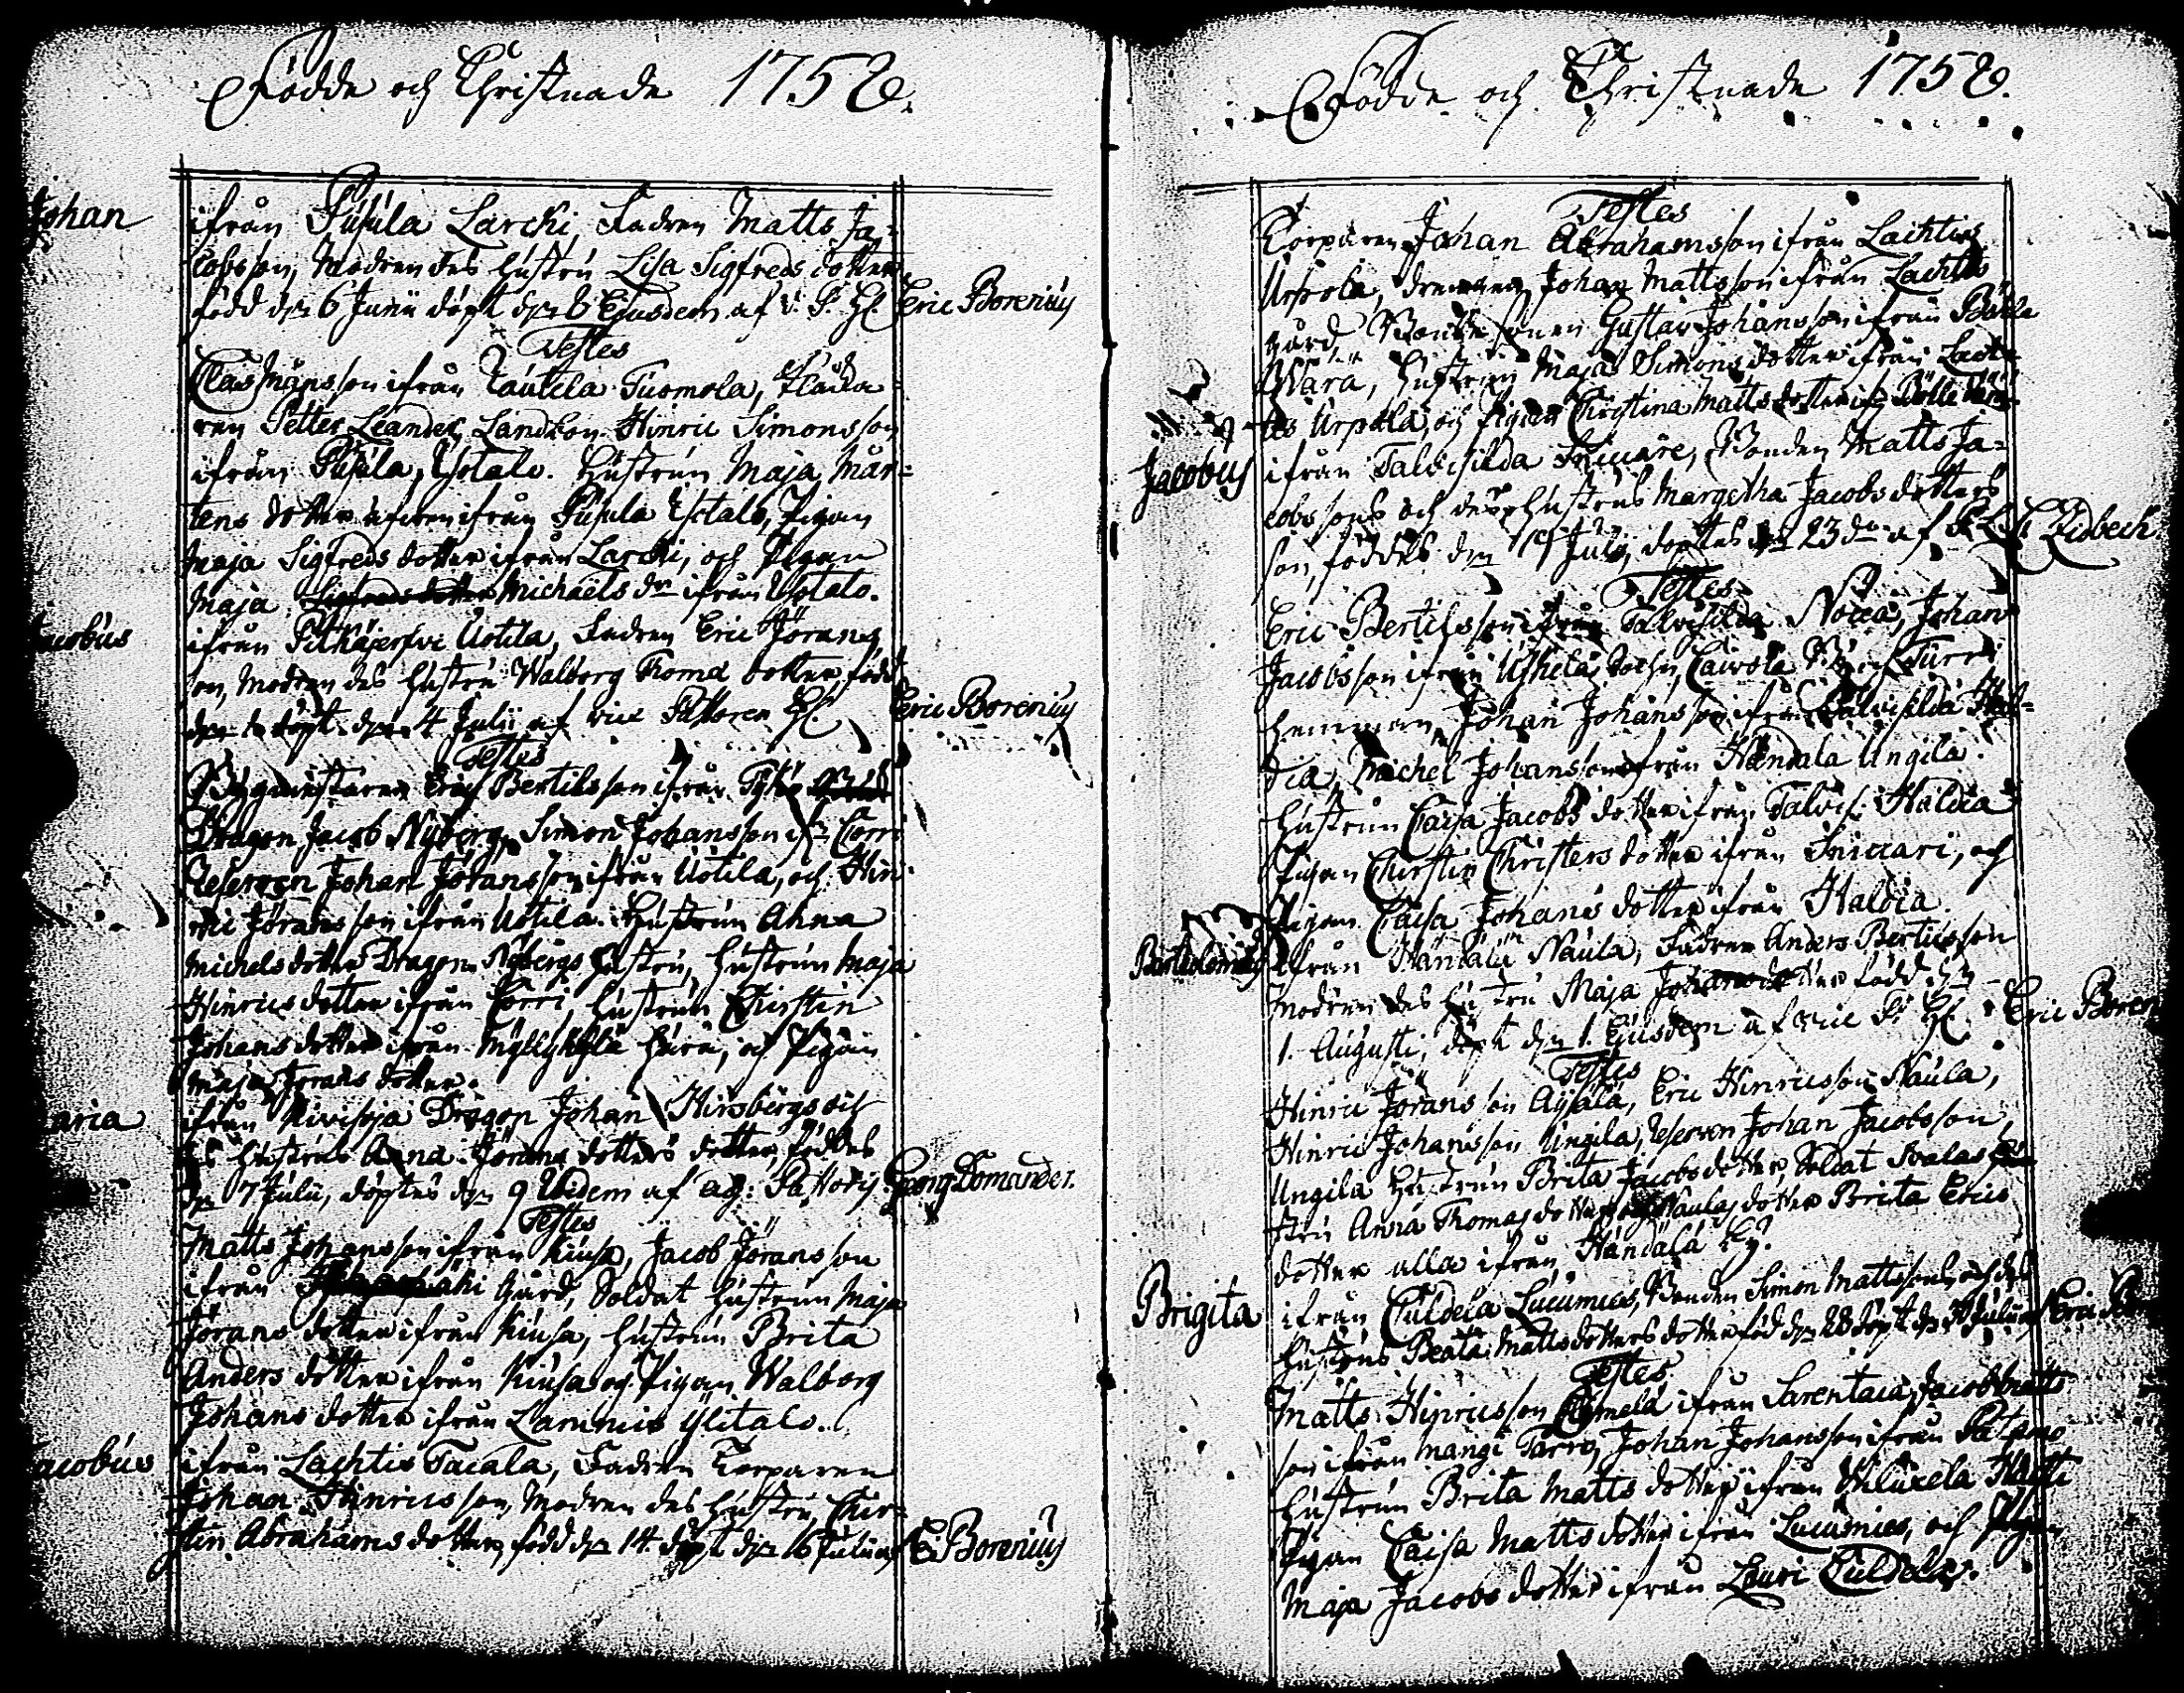 Födde och Christnade 1758.
Johan
ifrån Pusula Larcki, Fadren Matts Ja=
cobsson, Modren des Hustru Lisa Sigfreds dotter
född dn 6 Junii döpt dn 8 Ejusdem af v. P. H. Eric Borenius
Testes
Clas Månsson ifrån Tuomola,
ren Petter Leander, Landbon Hinric Simonsson
ifrån Pusula, Isotalo. Hustrun Maja Mår=
tens dotter ifrån Pusula Isotalo, Pigan
Maja Sigfreds dotter ifrån Larcki, och Pigan
Maja Michaëls dr ifrån Isotalo.
ifrån Pitkäjerfvi Uotila, Fadren Eric Jörans
son, Modren des Hustru Walborg Thomæ dotter, född
döpt dn 4 Julii af vice Pastoren H. Eric Borenius
Testes
Eric Bertilsson ifrån
Dragon Jacob Nyberg, Simon Johansson ifr. Corri
Reserven Johan Jöransson ifrån Uotila, och Hin
ric Jöransson ifrån Uotila. Hustrun Anna
Michels dotter Dragon Nybergs Hustru, Hustrun Maja
Hinrics dotter ifrån Corri, Hustrun Chirstin
Johans dotter ifrån Myllykylä, och Pigan
Maja Jörans dotter.
aria
ifrån Kivisoja Dragon Johan Hirsbergs och
des Hustrus Anna Jörans dotters dotter, föddes
dn 7 Julii, döptes dn 9 Ibidem af adj: Pastoris Georg Domander.
Testes
Matts Johansson ifrån Kiusa, Jacob Jöransson
ifrån Gård, Soldat Hustrun Maja
Jörans dotter ifrån Kiusa, Hustrun Brita
Anders dotter ifrån Kiusa och Pigan Walborg
Johans dotter ifrån Lammis Ylitalo.
acobus
ifrån Lachtis Tacala, Fadren Torparen
Johan Hinricsson, Modren des Hustru Chir=
stin Abrahams dotter, född dn 14 döpt dn 16 Julii af E. Borenius
Födde och Christnade 1758.
Testes
Torparen Johan Abrahamsson ifrån Lachtis
Urpola, Johan Mattsson ifrån Lachtis
gård Gustav Johansson ifrån
Wara, Hustrun Maja Simons dotter ifrån Lach=
tis Urpola, och Pigan Christina Matts dotter
Jacobus
ifrån Talvisilda Bonden Matts Ja=
cobssons och des Hustrus Margetha Jacobs dotters
son, föddes dn 19 Julii, döptes dn 23 dn af Lidbeck
Testes
Eric Bertilsson ifrån Talvisilda Johan
Jacobsson ifrån Ushela Sochn, Turri
hemman, Johan Johansson ifrån Talvisilda Hal=
dia, Michel Johansson ifrån Händälä Ungila.
Hustrun Caisa Jacobs dotter ifrån Talvis: Haldia
Pigan Chirstin Christers dotter ifrån Sniccari, och
Pigan Caisa Johans dotter ifrån Haldia.
Bartholomeus
ifrån Händälä Naula, Fadren Anders Bertilsson
Modren des Hustru Maja Johans dotter född dn
1. Augusti, döpt dn 1. Ejusdem af vice P. H. Eric Boren
Testes
Hinric Jöransson Äyälä, Eric Hinricsson Naula,
Hinric Johansson Ungila, Reserven Johan Jacobsson,
Ungila Hustrun Brita Jacobs dotter, Soldat Hu
stru Anna Thomas dotter och Naulas dotter Brita Erics
dotter alla ifrån Händälä By.
Brigita
ifrån Culdela Lucumies, Bonden Simon Mattssons och des
Hustrus Beata Matts dotters dotter född dn 28 döpt dn 30 Julii af Eric
Testes
Matts Hinricsson ifrån Sarentaca, Jacob Matts
son ifrån Mangi Tarro, Johan Johansson ifrån
Hustrun Brita Matts dotter ifrån
Pigan Caisa Matts dotter ifrån Lucumies, och Pigan
Maja Jacobs dotter ifrån Lauri Culdela.